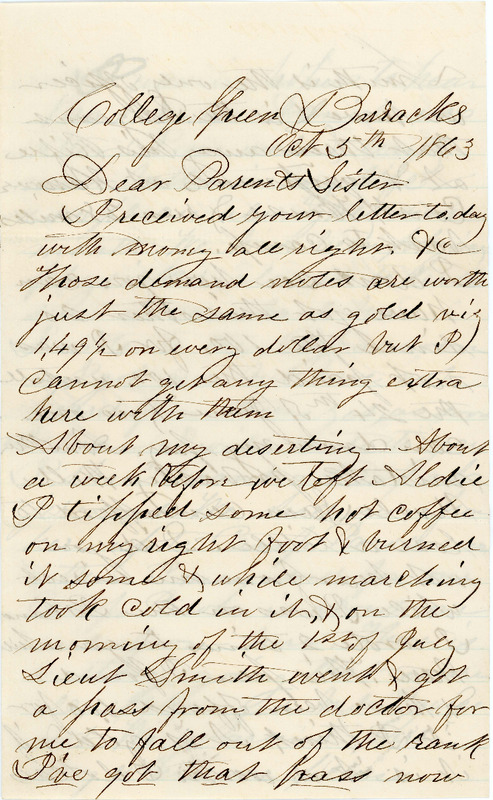 College Green Barracks
Oct 5th 1863
Dear Parents & Sister
I received your letter to day
with money all right &c
Those demand notes are worth
just the same as gold viz
1,49½ on every dollar but I
cannot get any thing extra
here with them
About my deserting — About
a week before we left Aldie
I tipped some hot coffee
on my right foot & burned
it some & while marching
took cold in it, & on the
morning of the 1st of July
Lieut Smith went & got
a pass from the doctor for
me to fall out of the rank
I've got that pass now